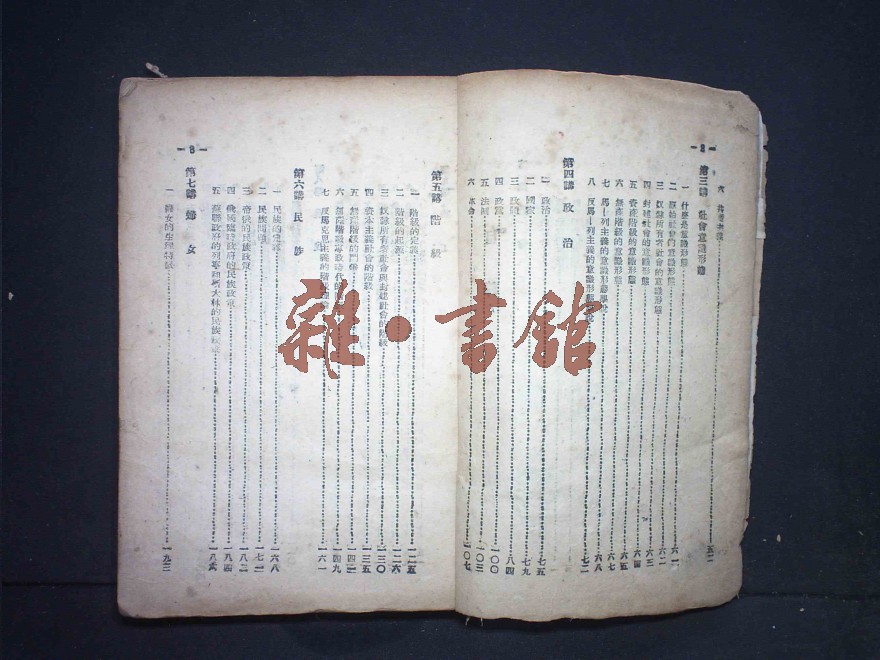 — 2 —
五二
第三講 社會意識形態
一 什麼是意識形態 六一
二 原始社會的意識形態 六二
三 奴隸所有者社會的意識形態 六二
四 封建社會的意識形態 六三
五 資產階級的意識形態 六四
六 無產階級的意識形態 六五
七 馬—列主義的意識形態 六八
八 反馬—列主義的意識形態 七二
第四講 政治
一 政治 七五
二 國家 七九
三 政權 八四
四 政黨 一〇〇
五 法制 一〇三
六 革命 一〇七
第五講 階級
一 階級的定義 一二五
二 階級的起源 一二六
三 奴隸所有者社會與封建社會的階級 一三〇
四 資本主義社會的階級 一三五
五 無產階級的鬥爭 一四二
六 無產階級專政時代的 一四九
七 反馬克思主義的階級 一六一
第六講 民族
一 民族的定義 一六八
二 民族問題 一七一
三 帝俄的民族政策 一八二
四 俄國臨時政府的民族政策 一八四
五 蘇聯政府的列寧和斯大林的民族政策 一八六
— 3 —
第七講 婦女
一 婦女的生理特徵 一九三
雜·書館